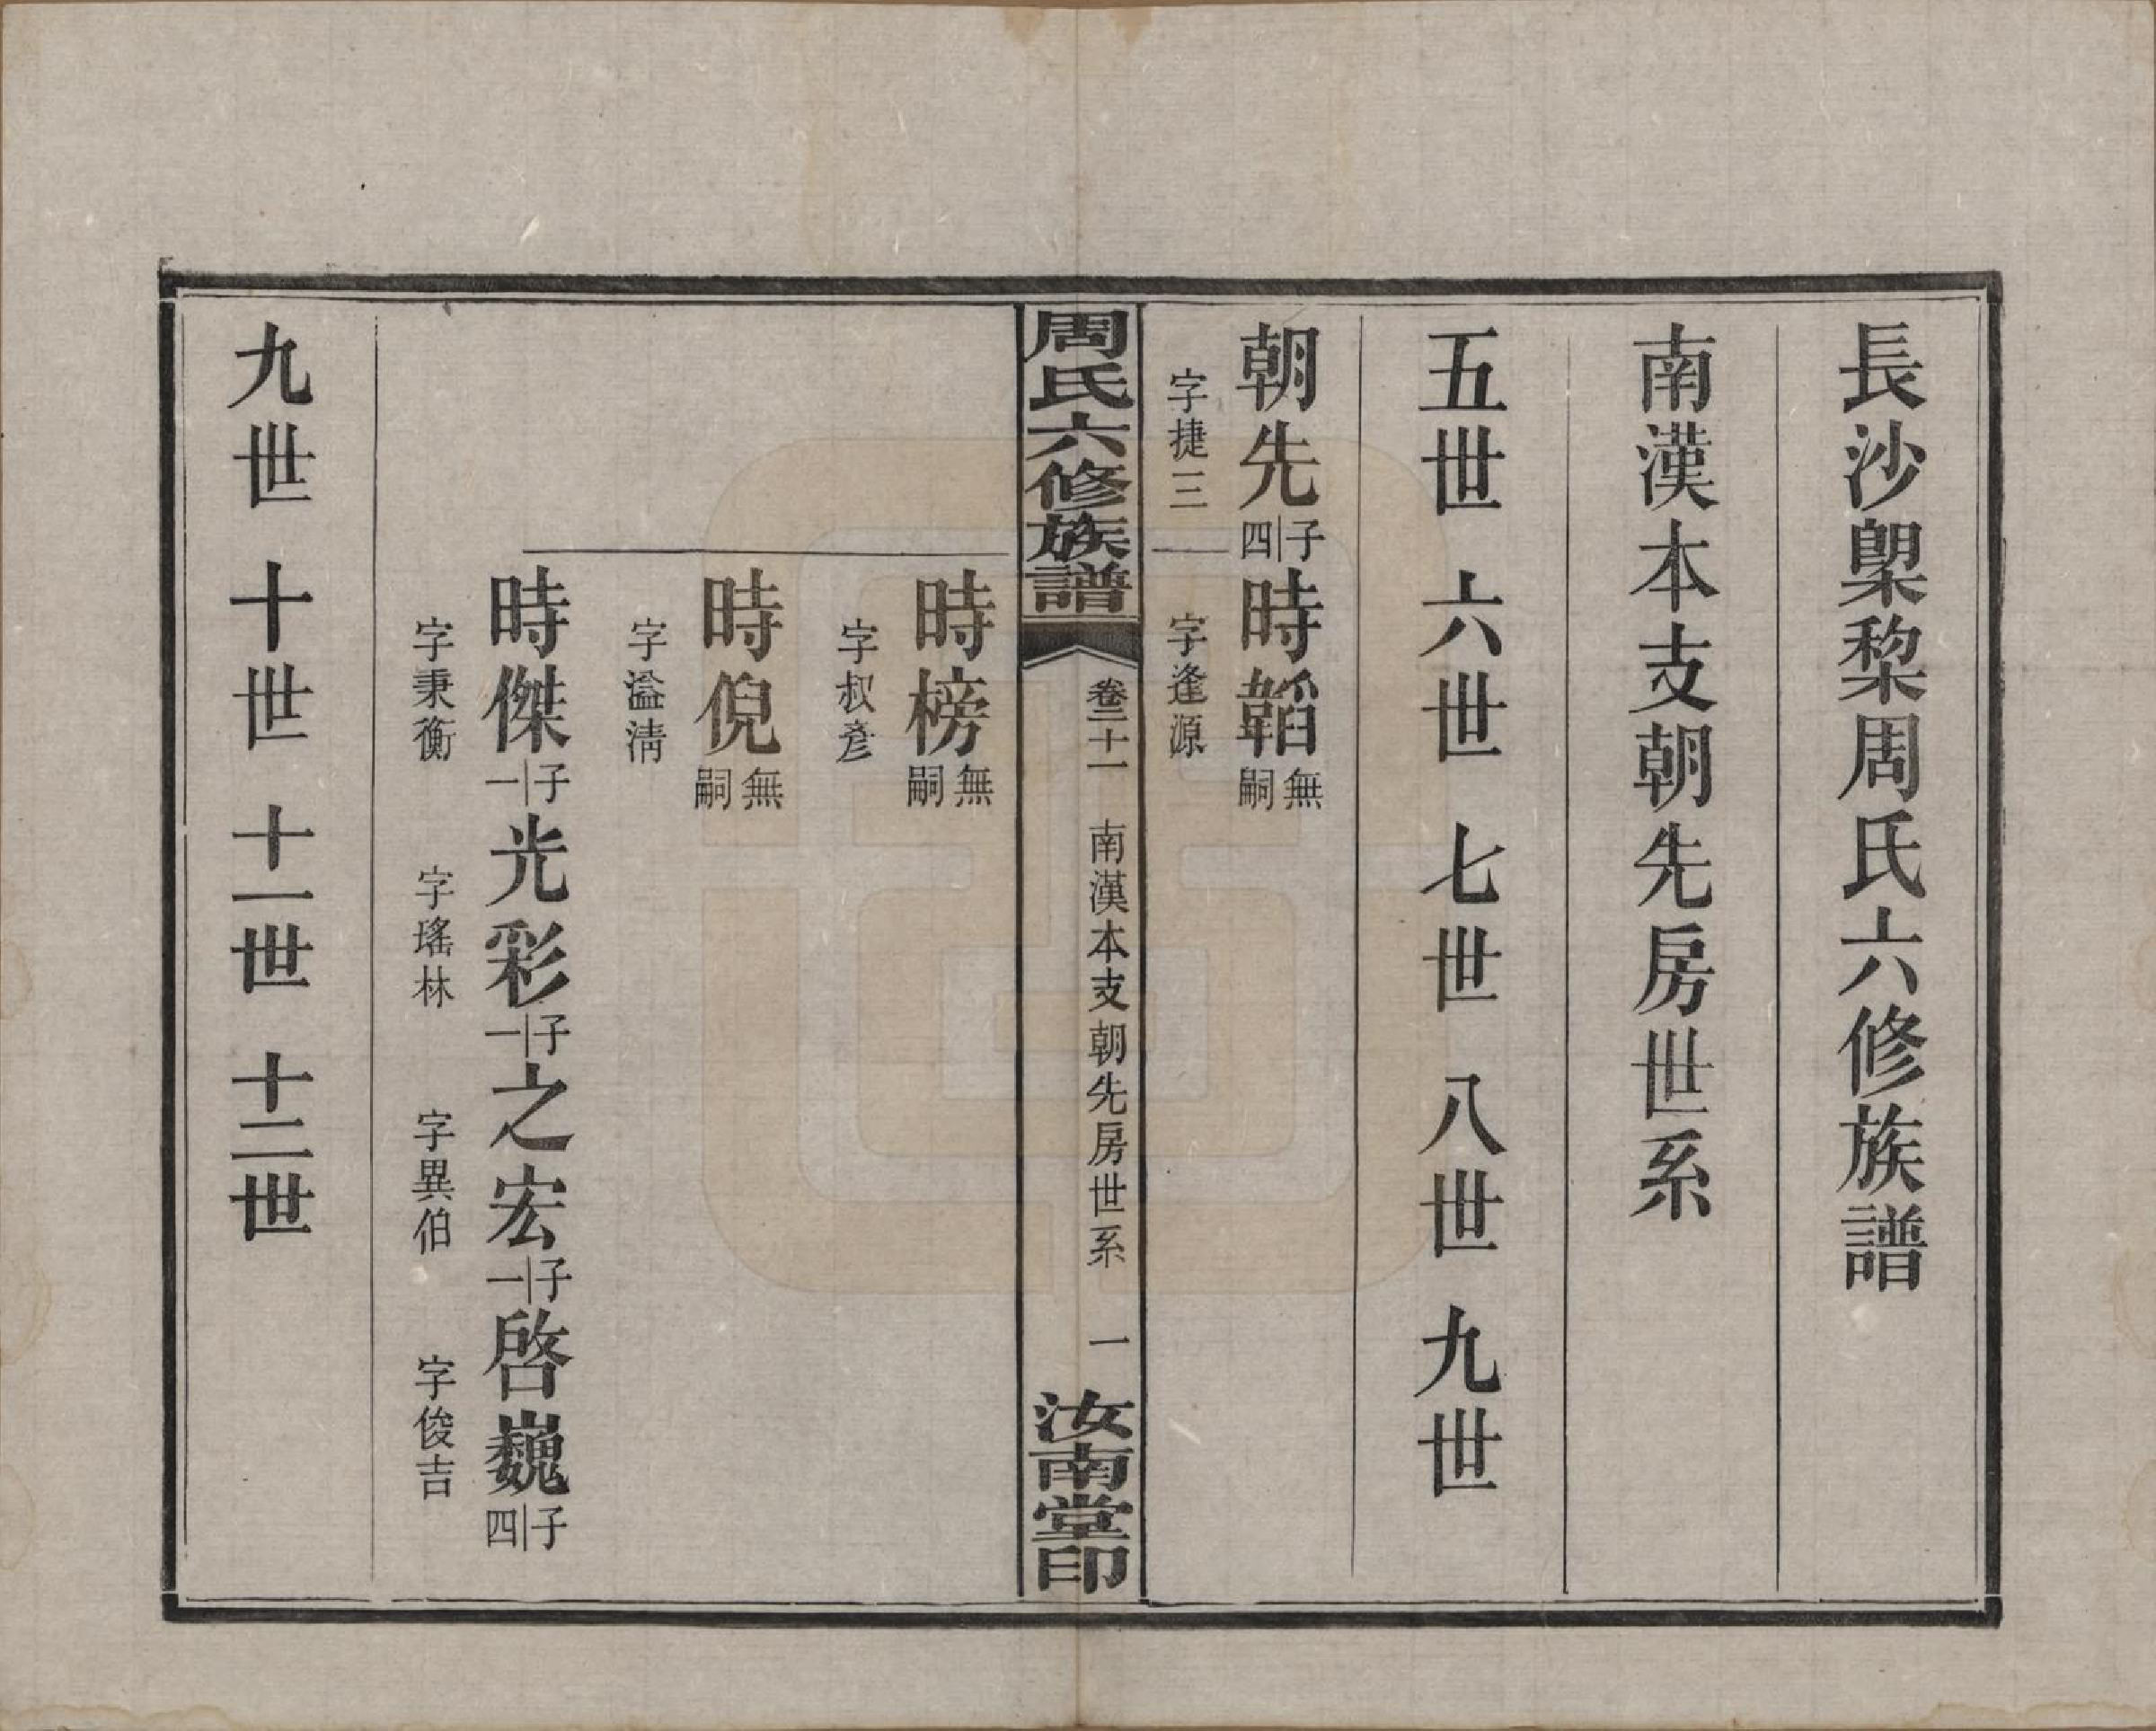 長沙㮚棃周氏六修族譜
南漢本支朝先房世系
五世 六世 七世 八世 九世
朝先 子四 時韜 無嗣
字捷三 字逢源
周氏六修族譜 卷二十一 南漢本支朝先房世系 一 汝南堂印
時榜 無嗣
字叔彥
時倪 無嗣
字溢清
時傑 子一 光彩 子一 之宏 子一 啓巍 子四
字秉衡 字瑤林 字異伯 字俊吉
九世 十世 十一世 十二世